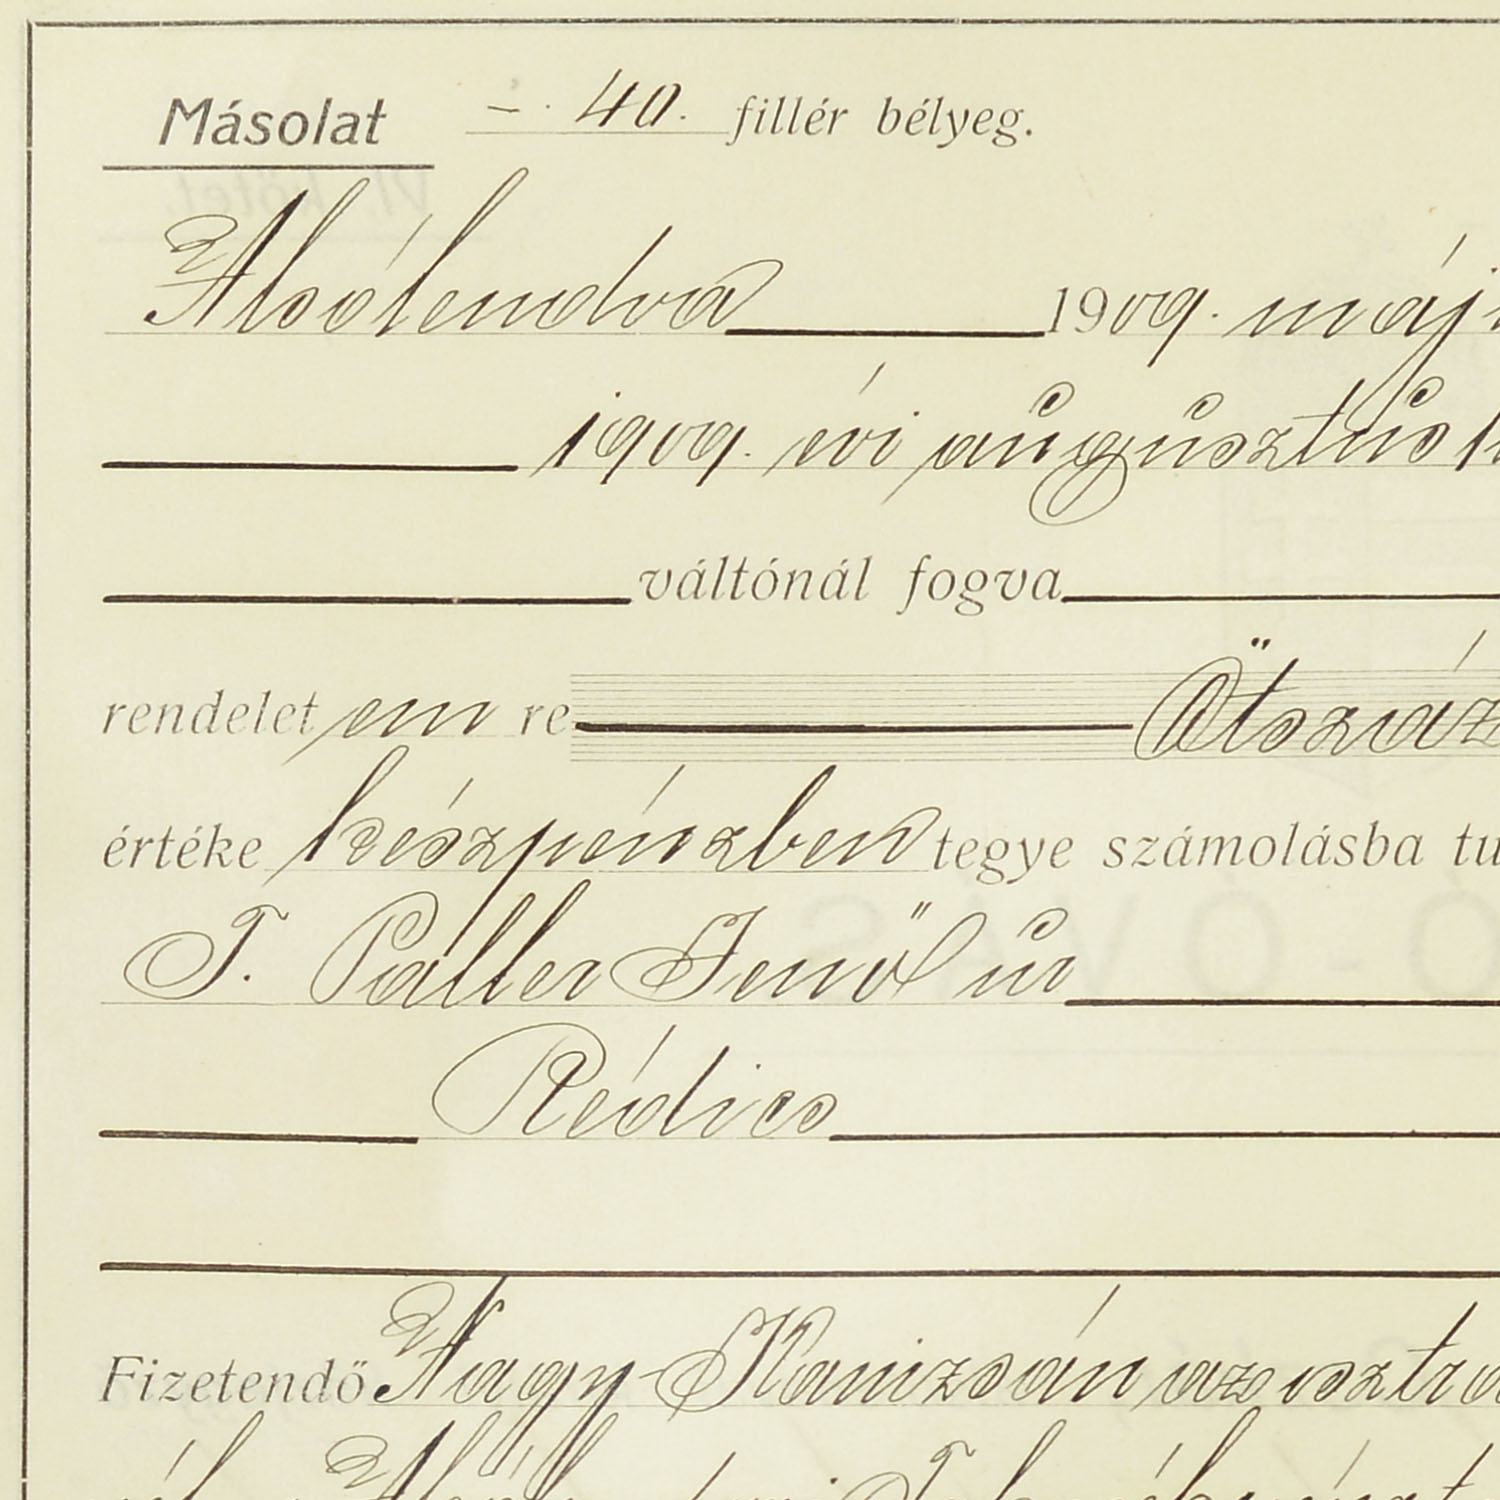 Másolat – . 40. fillér bélyeg.
Alsólendva 1909. máj
1909. évi augusztus
váltónál fogva
rendelet em re Ötszáz
értéke készpénzben tegye számolásba
T. Paller Jenő úr
Rédics
Fizetendő Nagy-Kanizsán az osztrá